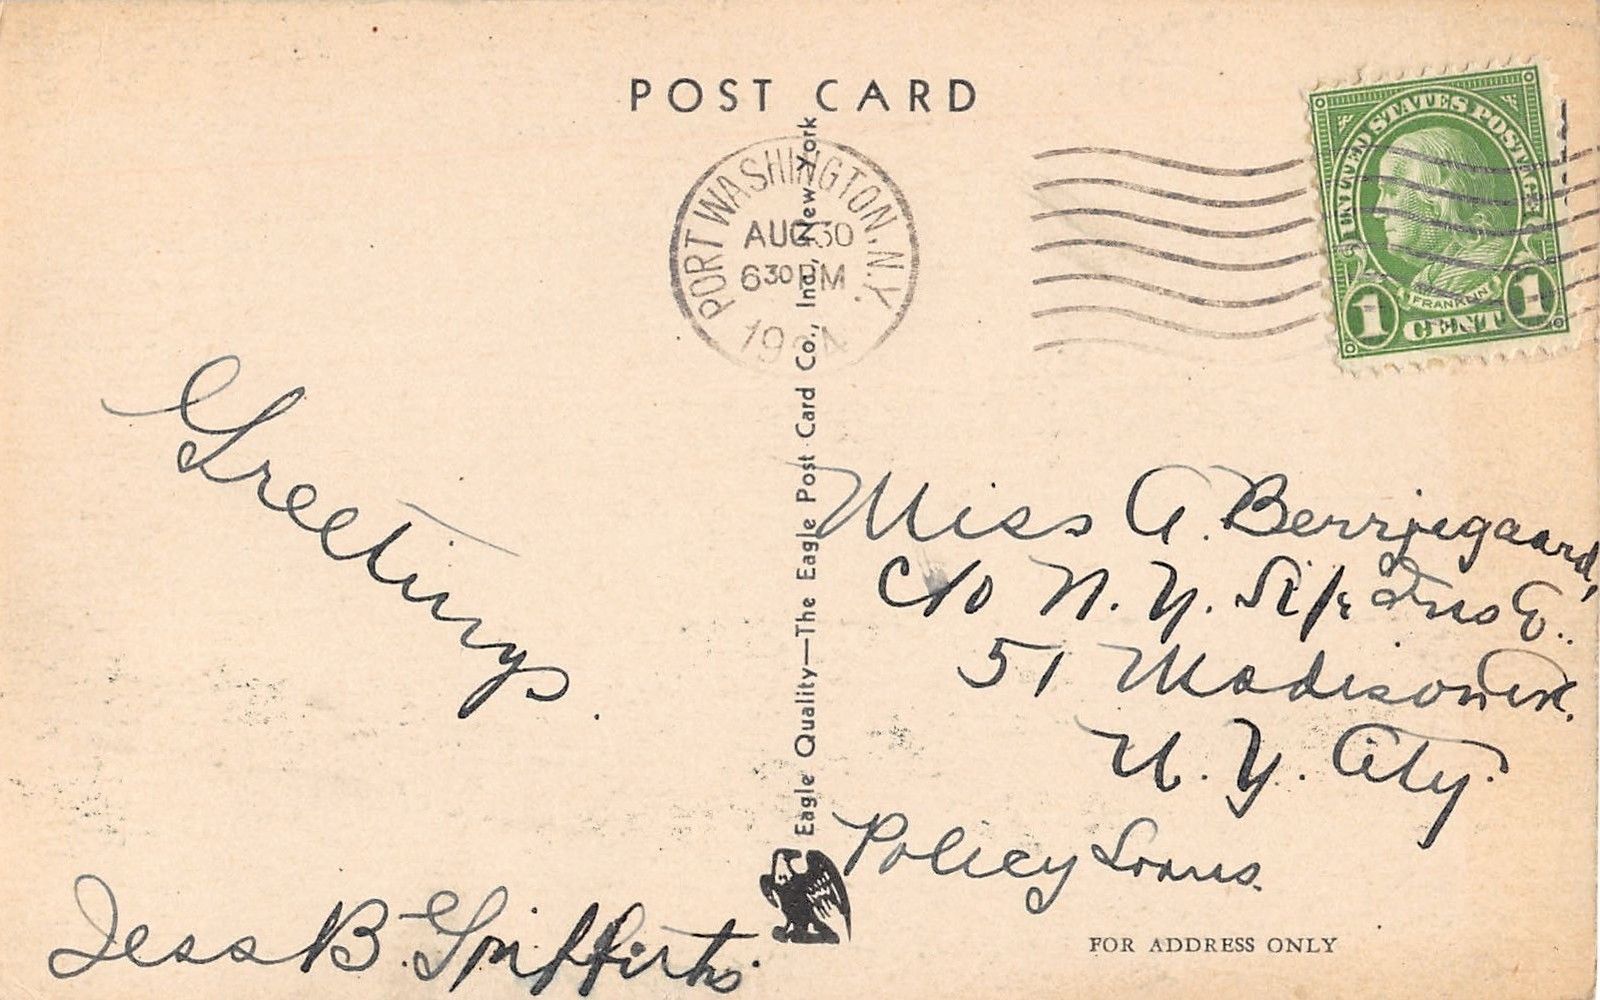 POST CARD
PORT WASHINGTON, N.Y.
AUG 30
6 30 PM
UNITED STATES POSTAGE
FRANKLIN
1 CENT 1
Greetings.
Jess B. Griffiths.
Eagle Quality—The Eagle Post Card Co., Inc., New York
Miss A.
C/o N. Y. Life Ins Co.
51 Madison Ave.
N. Y. City.
Policy Loans.
FOR ADDRESS ONLY